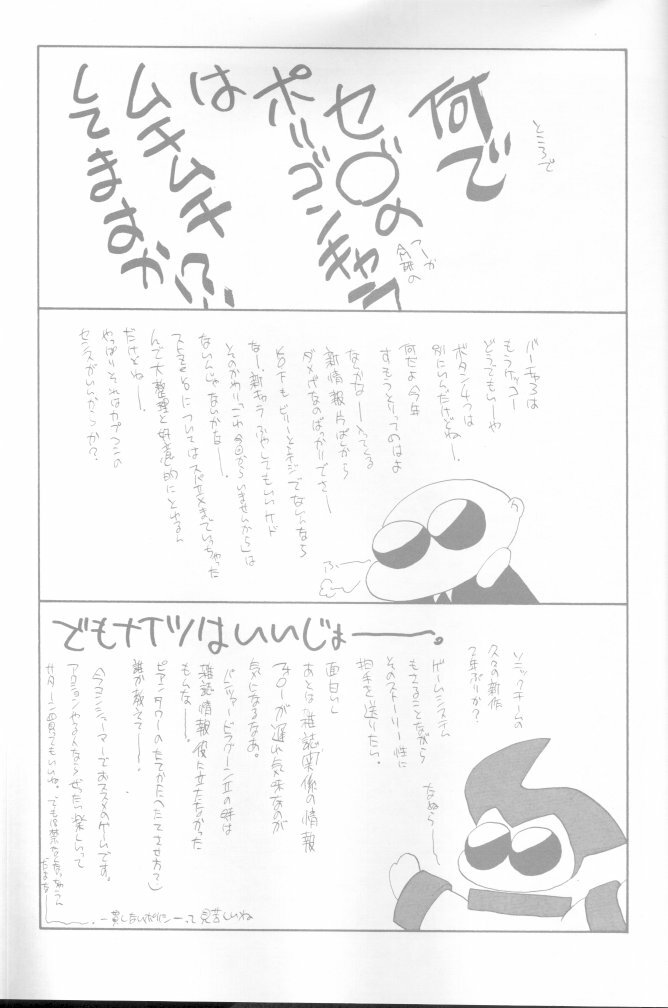 ところで
何で
セ〇の
つーか
AM研の
ポリゴンキャラ
は
ムチムチ
してますか
バーチャ3は
もうケッコー
どうでもいーや
ボタン4つは
別にいんだけどねー。
何だよ今年
すもうとりってのはよ
ならかなー入ってくる
新情報片っぱしから
ダメダメなのばっかりでさー
なー。新キャラふやしてもいいケド
そのかわり「これ今回からいませんから」は
ないんじゃないかなー。
については
んで大整理と好意的にとれるん
だけどねー。
やっぱりそれはカプコンの
センスがいいカンジか?
ふー
でもナイツはいいじょーー。
ソニックチームの
久々の新作
2年ぶりか?
ゲームシステム
もさることながら
そのストーリー性に
拍手を送りたい。
なぬらー
面白いし
あとは雑誌関係の情報
が遅れ気味なのが
気になるなあ。
パンツァードラグーンIIの時は
雑誌情報役に立たなかった
もんなー。
誰か教えてー。
今コンシューマーでおススメのゲームです。
アクションやる人ならぜったい楽しいって
サターン買ってもいいね。
だよなー
一貫しないポリシーって見苦しいね